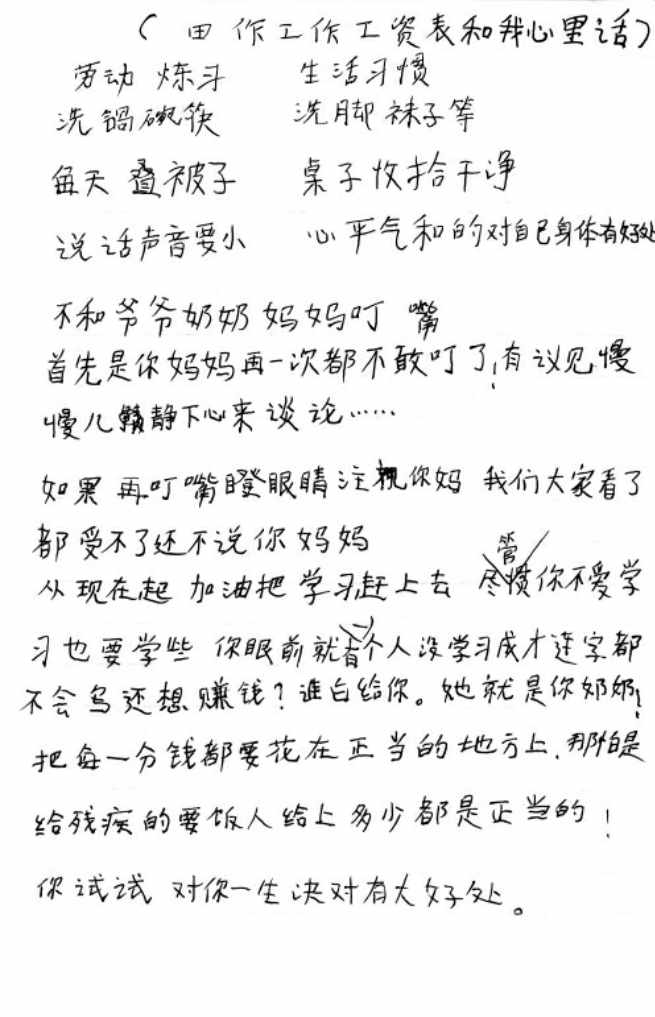 ( 田作工作工资表和我心里话)
劳动 炼习 生活习惯
洗锅碗筷 洗脚袜子等
每天 叠被子 桌子收拾干净
说话声音要小 心平气和的对自已身体有好处
不和爷爷奶奶妈妈叮 嘴
首先是你妈妈再一次都不敢叮了!有议见慢
慢儿静下心来谈论……
如果再叮嘴瞪眼睛注视你妈 我们大家看了
都受不了还不说你妈妈
从现在起 加油把学习赶上去 尽管你不爱学
习也要学些 你眼前就有一个人没学习成才连字都
不会写还想赚钱?谁白给你。她就是你奶奶!
把每一分钱都要花在正当的地方上.那怕是
给残疾的要饭人给上多少都是正当的!
你试试 对你一生决对有大好处。